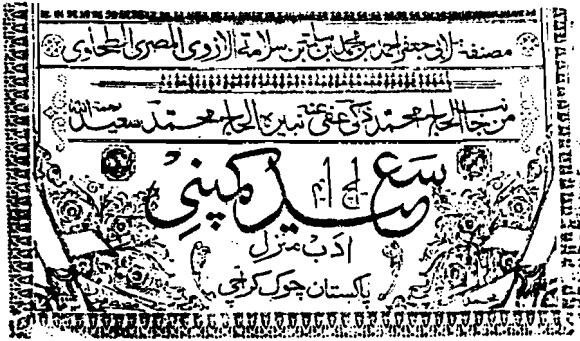 مصنفہ لابی جعفر احمد بن محمد بن سلامۃ الازدی المصری الطحاوی
من جانب الحاج محمد ذکی عفی عنہ نبیرہ الحاج محمد سعید
ایچ ایم
سعید کمپنی
ادب منزل
پاکستان چوک کراچی